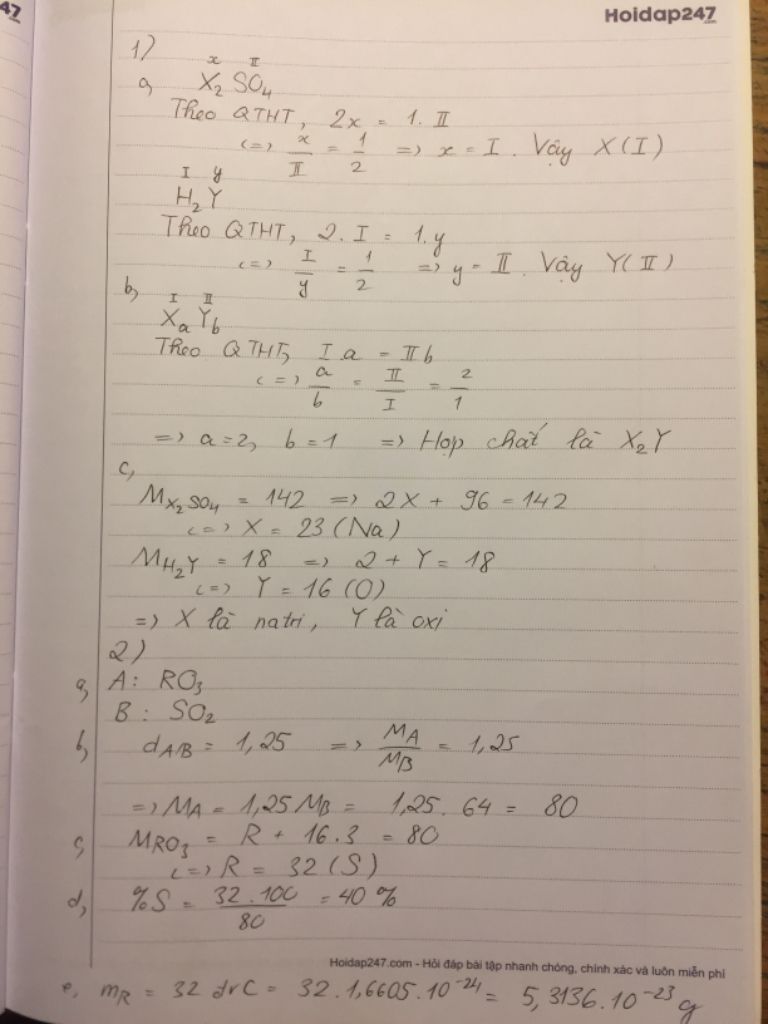 47
Hoidap247
1)
x II
a, X₂ SO₄
Theo QTHT, 2x = 1. II
<=> x/II = 1/2 => x = I. Vậy X(I)
I y
H₂ Y
Theo QTHT, 2. I = 1. y
<=> I/y = 1/2 => y = II. Vậy Y(II)
b,
I II
Xₐ Y_b
Theo QTHT, I a = II b
<=> a/b = II/I = 2/1
=> a = 2, b = 1 => Hợp chất là X₂Y
c,
M_X₂SO₄ = 142 => 2X + 96 = 142
<=> X = 23 (Na)
M_H₂Y = 18 => 2 + Y = 18
<=> Y = 16 (O)
=> X là natri, Y là oxi
2)
a, A: RO₃
B: SO₂
b, d_A/B = 1,25 => M_A/M_B = 1,25
=> M_A = 1,25 M_B = 1,25. 64 = 80
c, M_RO₃ = R + 16.3 = 80
<=> R = 32 (S)
d, %S = 32.100/80 = 40 %
Hoidap247.com - Hỏi đáp bài tập nhanh chóng, chính xác và luôn miễn phí
e, m_R = 32 đvC = 32. 1,6605. 10⁻²⁴ = 5,3136. 10⁻²³ g